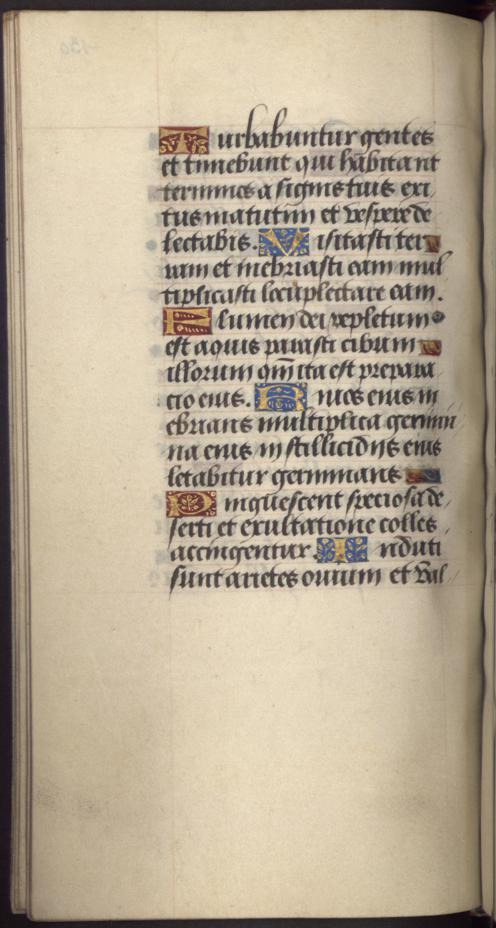 Turbabuntur gentes
et timebunt qui habitant
terminos a signis tuis exi
tus matutini et vespere de
lectabis. Visitasti ter
ram et inebriasti eam mul
tiplicasti locupletare eam.
Flumen dei repletum
est aquis parasti cibum
illorum qm̄ ita est prepara
cio eius. Riuos eius in
ebrians multiplica germin
na eius in stillicidijs eius
letabitur germinans
Pinguescent speciosa de
serti et exultatione colles
accingentur. Induti
sunt arietes ouium et val